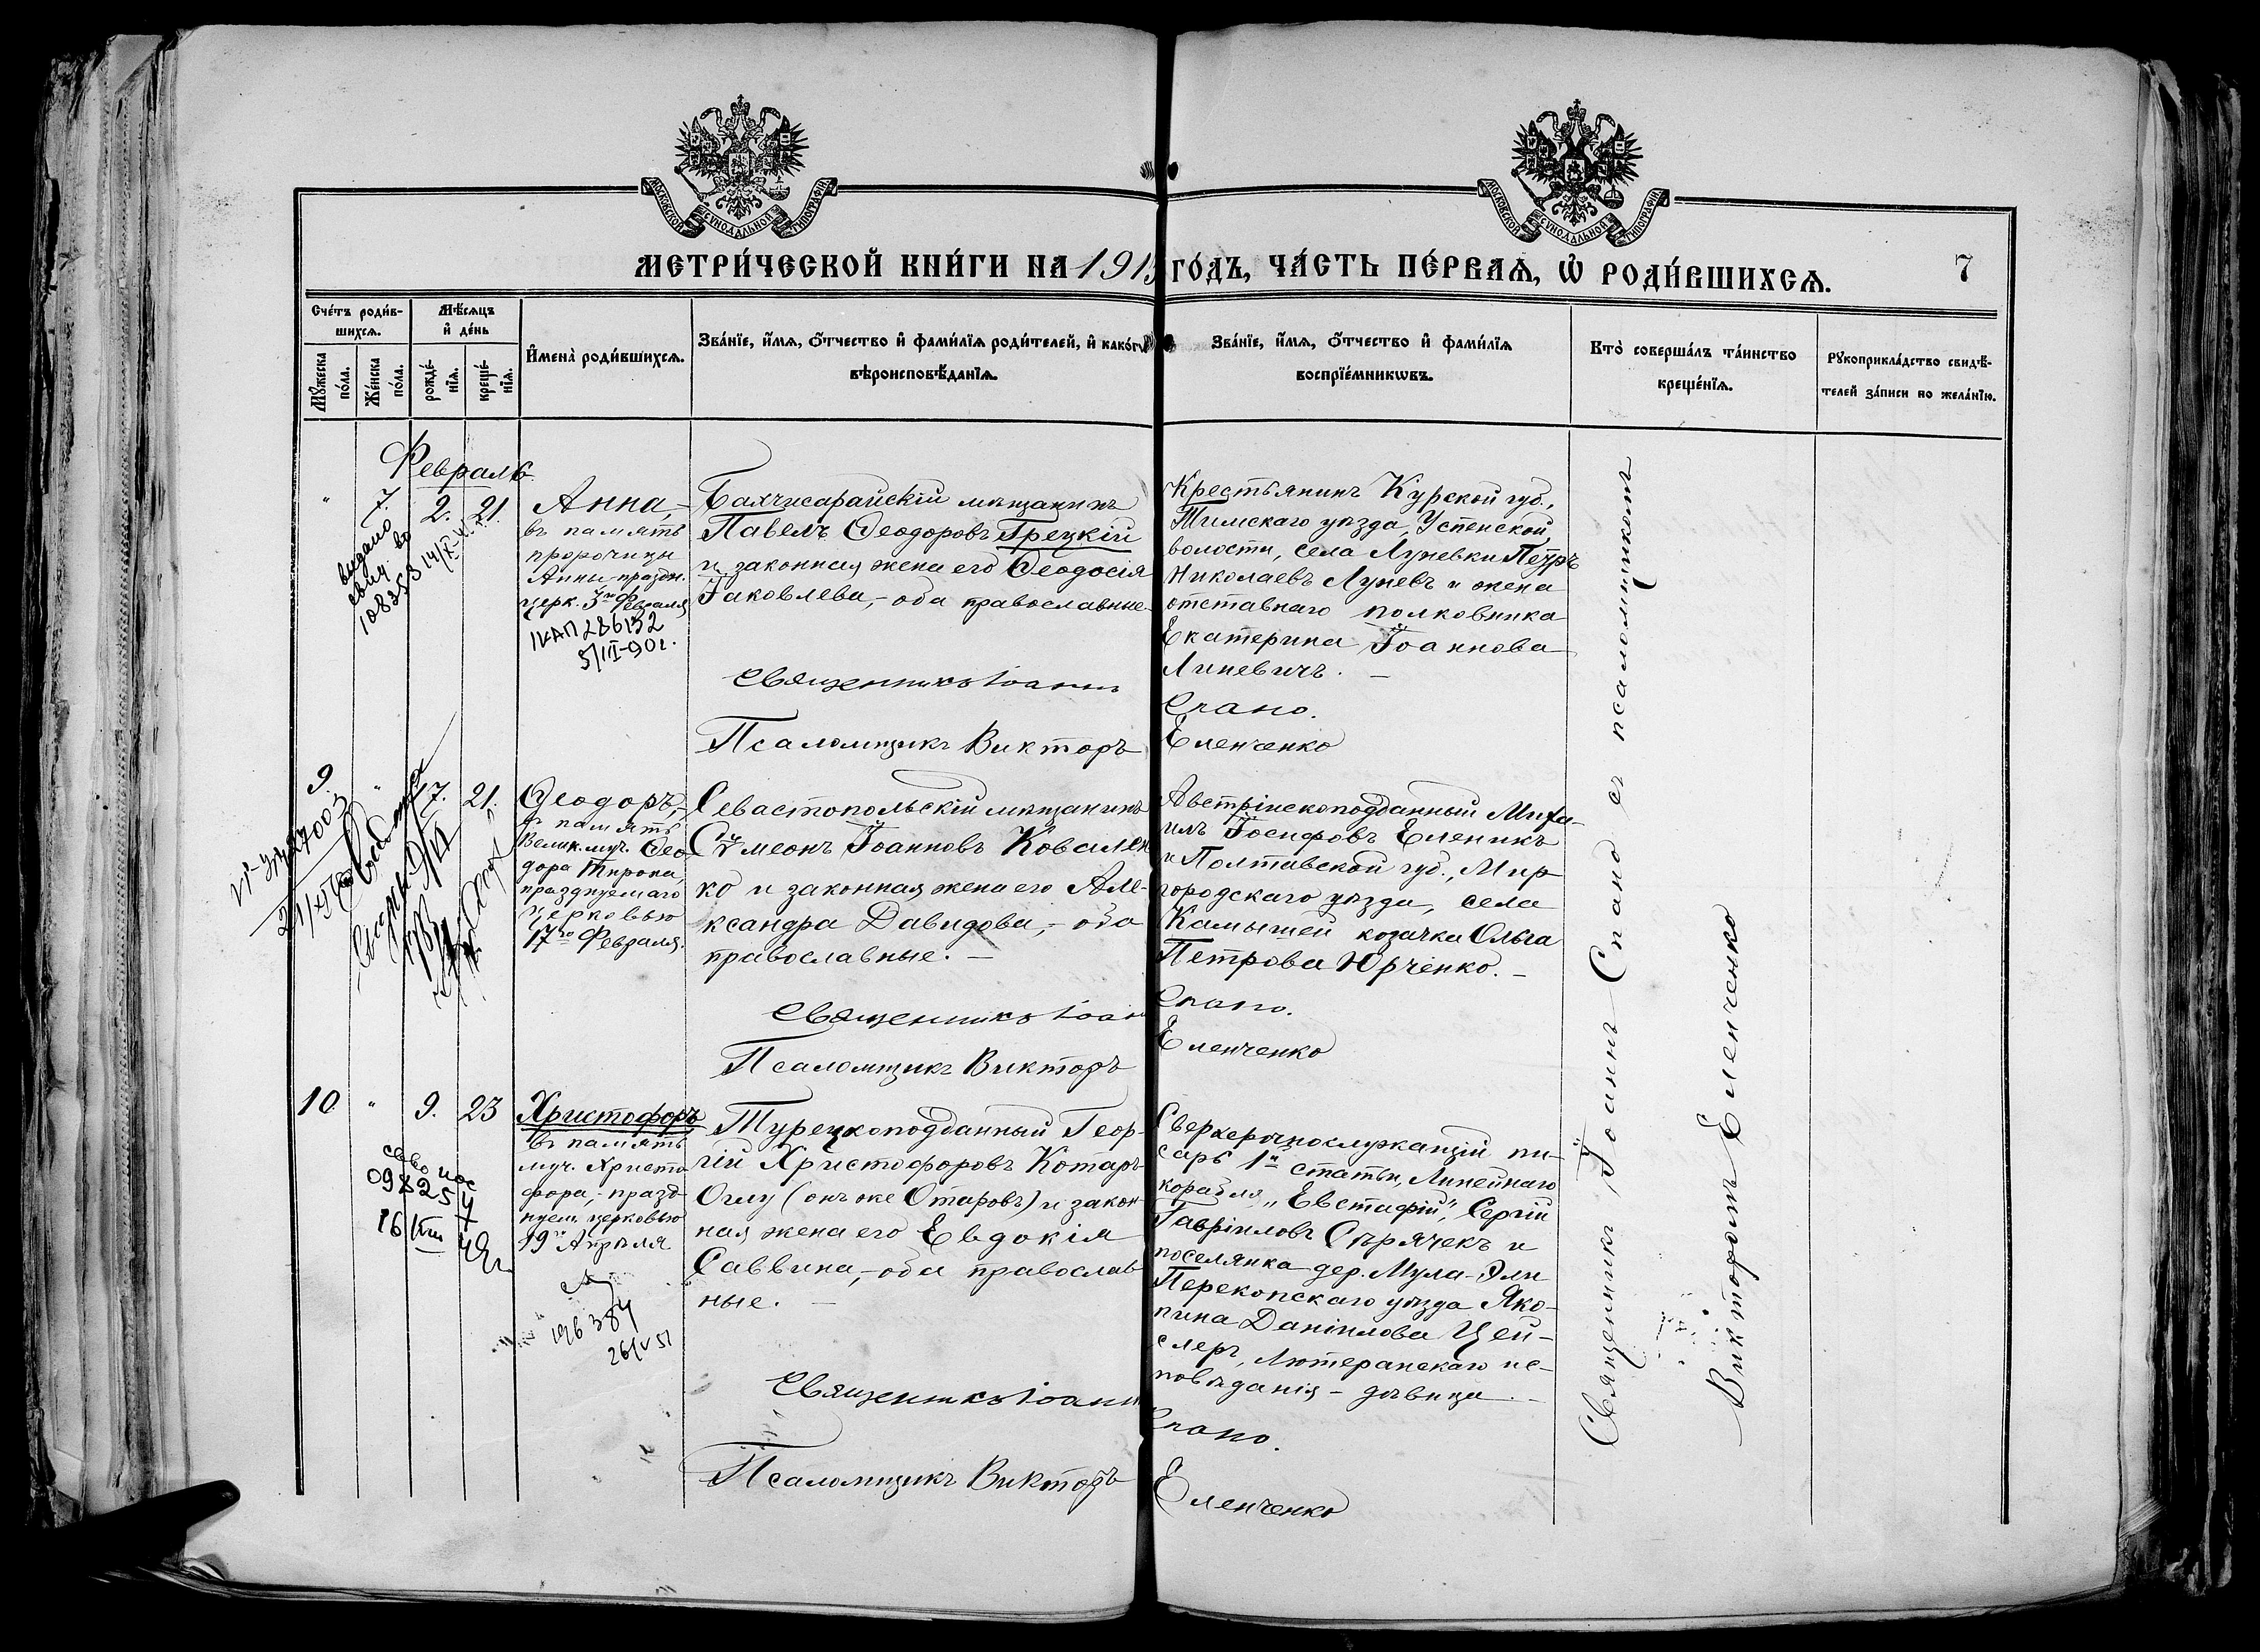 МОСКОВСКОЙ СѴНОДАЛЬНОЙ ТИПОГРАФІИ
МОСКОВСКОЙ СѴНОДАЛЬНОЙ ТИПОГРАФІИ
МЕТРИ́ЧЕСКОЙ КНИ́ГИ НА 1915 ГО́ДЪ, ЧА́СТЬ ПЕ́РВАЯ, Ѡ҆ РОДИ́ВШИХСЯ.
7
Сче́тъ роди́в-
шихся.
Мꙋ́жеска по́ла.
Же́нска по́ла.
Мѣ́сяцъ
и҆ де́нь
рожде́-
нїя.
креще́-
нїя.
И҆мена̀ роди́вшихся.
Зва́нїе, и҆́мя, ѻ҆́тчество и҆ фами́лїя роди́телей, и҆ како́гѡ
вѣроисповѣ́данїя.
Зва́нїе, и҆́мя, ѻ҆́тчество и҆ фами́лїя
воспрїе́мникѡвъ.
Кто̀ соверша́лъ та́инство
креще́нїя.
Рꙋкоприкла́дство свидѣ́-
телей за́писи по жела́нїю.
Февраль
" 7. 2. 21.
выдано
свид во
108253 14/X-
Анна,-
въ память
пророчицы
Анны праздн.
церк. 3го Февраля
IКАП 286132
5/III-90г.
Бахчисарайскій мѣщанинъ
Павелъ Ѳеодоровъ Грецкій
и законная жена его Ѳеодосія
Іаковлева,- оба православные.
Священникъ Іоаннъ
Псаломщикъ Викторъ
Крестьянинъ Курской губ.,
Тимскаго уѣзда, Успенской
волости, села Луневки Петръ
Николаевъ Луневъ и жена
отставнаго полковника
Екатерина Іоаннова
Линевичъ. -
Спано.
Еленченко
9. " 17. 21.
Ѳеодоръ,-
въ память
Велик.муч. Ѳео-
дора Тирона,
празднуемаго
церковью
17го Февраля.
Севастопольскій мѣщанинъ
Сѵмеонъ Іоанновъ Ковален
ко и законная жена его Але-
ксандра Давидова,- оба
православные. -
Священникъ Іоан
Псаломщикъ Викторъ
Австрійскоподданный Миха-
илъ Іосифовъ Еленикъ
и Полтавской губ., Мир-
городскаго уѣзда, села
Камышей козачка Ольга
Петрова Юрченко. -
Спано.
Еленченко
10 " 9. 23
Христофоръ
въ память
муч. Христо
фора,- празд-
нуем. церковью
19го Апрѣля
196384
26/V 51
Турецкоподданный Геор-
гій Христофоровъ Котаръ-
Оглу (онъ же Отаровъ) и закон-
ная жена его Евдокія
Саввина,- оба православ
ные. -
Священникъ Іоанн
Псаломщикъ Викторъ
Сверхсрочнослужащій пи-
сарь 1й статьи, Линейнаго
корабля „Евстафій", Сергій
Гавріиловъ Сѣрячекъ и
поселянка дер. Мула-Эли
Перекопскаго уѣзда Яко-
пина Даніилова Цей-
слеръ, Лютеранскаго ис-
повѣданія - дѣвица. -
Спано.
Еленченко
Священникъ Іоаннъ Спано съ псаломщикомъ
Викторомъ Еленченко